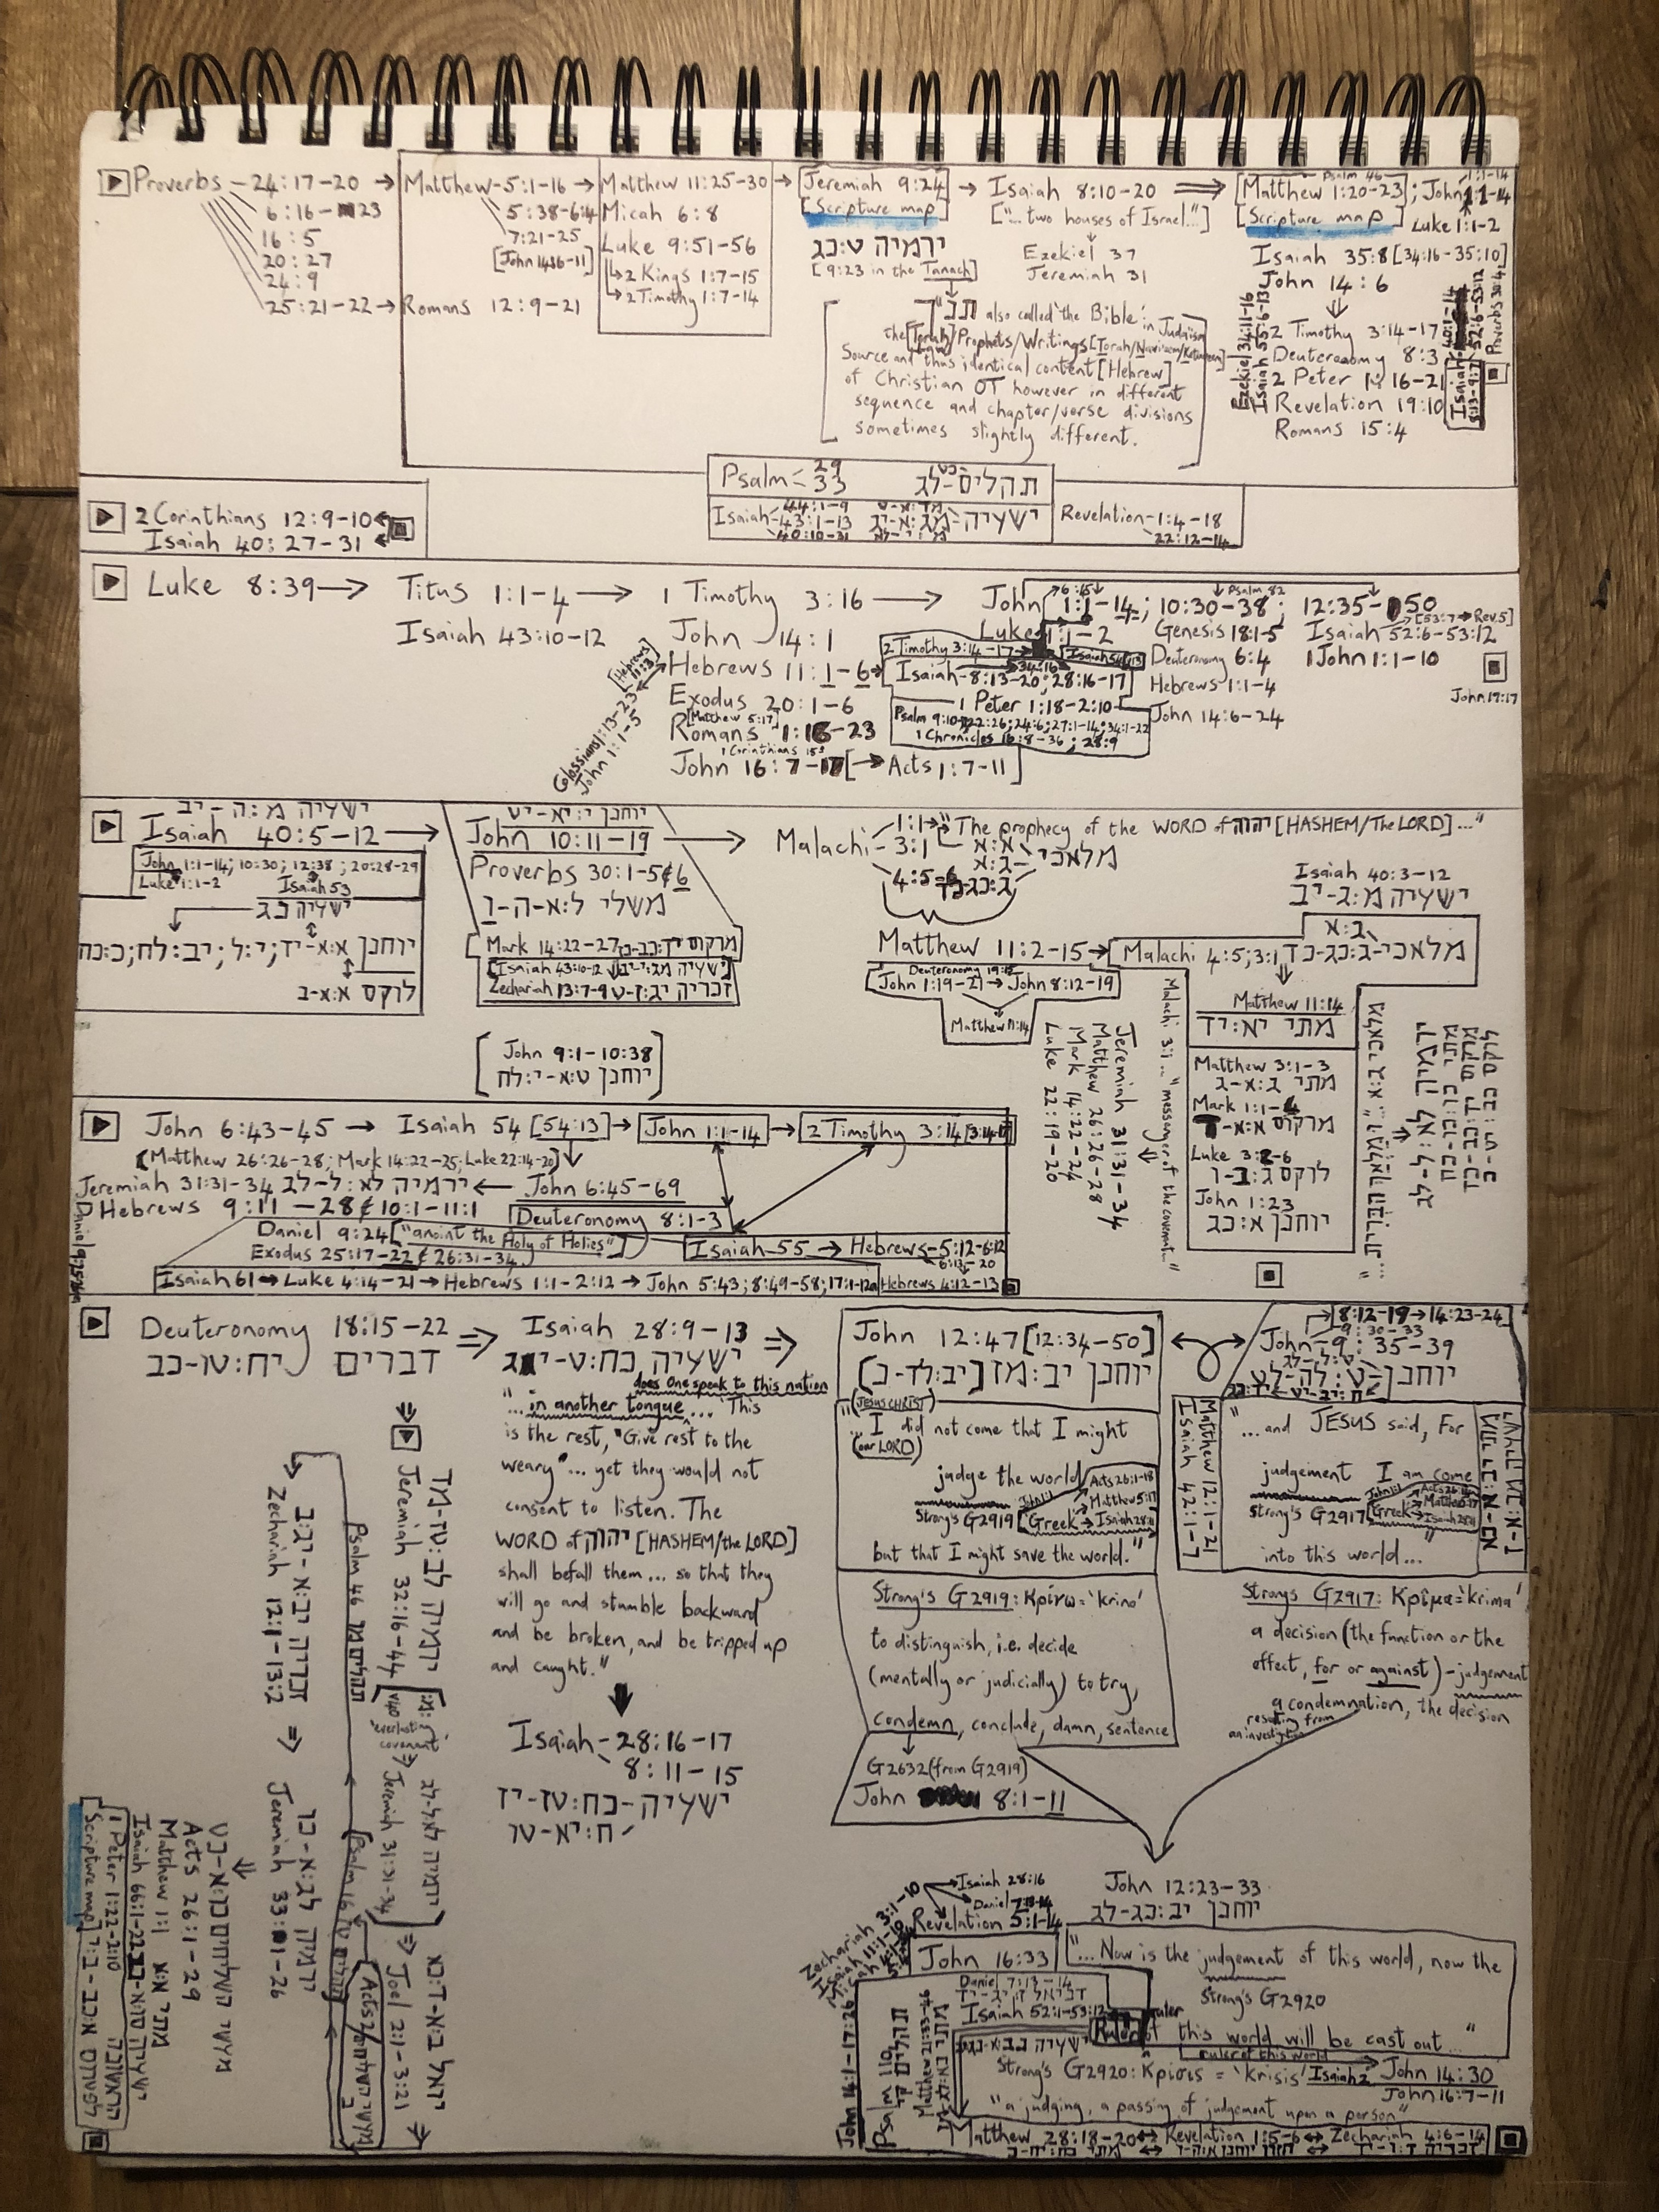 Proverbs - 24:17-20 → Matthew - 5:1-16 → Matthew 11:25-30 → Jeremiah 9:24 → Isaiah 8:10-20 ⇒ Matthew 1:20-23; John 1:1-14
6:16-23
5:38-6:4
Micah 6:8
[Scripture map]
["...two houses of Israel..."]
Psalm 46
[Scripture map]
Luke 1:1-2
16:5
7:21-25
Luke 9:51-56
ירמיה ט:כג
Ezekiel 37
Isaiah 35:8 [34:16-35:10]
20:27
↳ 2 Kings 1:7-15
[9:23 in the Tanach]
Jeremiah 31
John 14:6
24:9
↳ 2 Timothy 1:7-14
25:21-22 → Romans 12:9-21
תנ"ך also called the Bible in Judaism
the [Torah]/Prophets/Writings
Source and thus identical content [Hebrew]
of Christian OT however in different
sequence and chapter/verse divisions
sometimes slightly different.
2 Timothy 3:14-17
Deuteronomy 8:3
2 Peter 1:16-21
Revelation 19:10
Romans 15:4
Ezekiel 34:11-16
Isaiah 55:6-13
Proverbs 30:4
Psalm - 29
33
תהלים-לג
Isaiah - 44:1-9
43:1-13
40:10-31
ישעיה-מג:א-יג
Revelation - 1:4-18
22:12-14
2 Corinthians 12:9-10
Isaiah 40:27-31
Luke 8:39 → Titus 1:1-4 → 1 Timothy 3:16 → John 1:1-14; 10:30-38; 12:35-50
6:45
Psalm 82
Isaiah 43:10-12
John 14:1
Luke 1:1-2
Genesis 18:1-5
Isaiah 52:6-53:12
[53:7→Rev.5]
2 Timothy 3:14-17
Hebrews 11:1-6
34:16
Isaiah - 8:13-20; 28:16-17
Deuteronomy 6:4
1 John 1:1-10
Hebrews 1:1-4
Exodus 20:1-6
1 Peter 1:18-2:10
John 14:6-24
John 17:17
[Matthew 5:17]
Romans 1:16-23
1 Chronicles 16:8-36; 28:9
John 16:7-17 [→ Acts 1:7-11]
[Hebrews 11:3]
Colossians 1:13-23
John 1:1-5
ישעיה מ:ה-יב
Isaiah 40:5-12 →
John 1:1-14; 10:30; 12:38; 20:28-29
Luke 1:1-2
Isaiah 53
ישעיה נג
יוחנן א:א-יד; י:ל; יב:לח; כ:כח
לוקס א:א-ב
יוחנן י:יא-יט
John 10:11-19 →
Proverbs 30:1-5 & 6
משלי ל:א-ה-ו
Mark 14:22-27 מרקוס יד:כב-כז
[Isaiah 43:10-12 ישעיה מג:י-יב]
Zechariah 13:7-9 זכריה יג:ז-ט
[John 9:1-10:38
יוחנן ט:א-י:לח]
Malachi - 1:1 → "The prophecy of the WORD of יהוה [HASHEM/The LORD]..."
3:1
4:5-6
מלאכי
א:א
ג:א
ג:כג-כד
Matthew 11:2-15 → Malachi 4:5; 3:1 מלאכי-ג:כג-כד
Deuteronomy 19:15
John 1:19-21 → John 8:12-19
Matthew 11:14
Isaiah 40:3-12
ישעיה מ:ג-יב
Matthew 11:14
מתי יא:יד
Matthew 3:1-3
מתי ג:א-ג
Mark 1:1-4
מרקוס א:א-ד
Luke 3:2-6
לוקס ג:ב-ו
John 1:23
יוחנן א:כג
Malachi 3:1... "messenger of the covenant..."
Jeremiah 31:31-34
Matthew 26:26-28
Mark 14:22-24
Luke 22:19-20
ירמיה לא:ל-לג
מתי כו:כו-כח
מרקוס יד:כב-כד
לוקס כב:יט-כ
John 6:43-45 → Isaiah 54 [54:13] → John 1:1-14 → 2 Timothy 3:14 [3:14-17]
(Matthew 26:26-28; Mark 14:22-25; Luke 22:14-20)
Jeremiah 31:31-34 ירמיה לא:ל-לב ← John 6:45-69
Hebrews 9:11-28 & 10:1-11:1
Deuteronomy 8:1-3
Daniel 9:24 ["anoint the Holy of Holies"]
Isaiah - 55 → Hebrews - 5:12-6:12
6:13-20
Exodus 25:17-22 & 26:31-34
Isaiah 61 → Luke 4:14-21 → Hebrews 1:1-2:12 → John 5:43; 8:49-58; 17:1-12
Hebrews 4:12-13
Deuteronomy 18:15-22 ⇒ Isaiah 28:9-13 ⇒ John 12:47 [12:34-50]
דברים יח:טו-כב
ישעיה כח:ט-יג
יוחנן יב:מז [יב:לד-נ]
8:12-19 → 14:23-24
9:30-33
John - 9:35-39
יוחנן-ט:לה-לט
does One speak to this nation
"...in another tongue... "This
is the rest, "Give rest to the
weary"... yet they would not
consent to listen. The
WORD of יהוה [HASHEM/the LORD]
shall befall them... so that they
will go and stumble backward
and be broken, and be tripped up
and caught."
Isaiah - 28:16-17
8:11-15
ישעיה-כח:טז-יז
ח:יא-טו
(JESUS CHRIST)
"...I did not come that I might
(our LORD)
judge the world
Strong's G2919 [Greek → Isaiah 28:11
John 1:1
Acts 26:1-18
Matthew 5:17
but that I might save the world."
Strong's G2919: Κρίνω = 'krino'
to distinguish, i.e. decide
(mentally or judicially) to try,
condemn, conclude, damn, sentence
G2632 (from G2919)
John 8:1-11
Matthew 12:1-21
Isaiah 42:1-7
"...and JESUS said, For
judgement I am come
Strong's G2917 [Greek → Isaiah 28:11
into this world..."
Strongs G2917: Κρίμα = 'krima'
a decision (the function or the
effect, for or against) - judgement
a condemnation, the decision
resulting from
an investigation
Jeremiah 32:16-44
ירמיה לב:טז-מד
"everlasting covenant"
Jeremiah 31:31-34
Joel 2:1-3:21
Psalm 46 תהלים מו
Psalm 16
Acts 2
Zechariah 12:1-13:2
זכריה יב:א-יג:ב
Jeremiah 33:1-26
ירמיה לג:א-כו
Acts 26:1-29
Matthew 1:1 מתי א:א
Isaiah 66:1-22
1 Peter 1:22-2:10
[Scripture map]
John 12:23-33
יוחנן יב:כג-לג
Isaiah 28:16
Daniel 7:13-14
Revelation 5:1-14
Zechariah 3:1-10
Isaiah 11:1-10
John 16:33
"...Now is the judgement of this world, now the
Strong's G2920
Ruler of this world will be cast out..."
Daniel 7:13-14
דניאל ז:יג-יד
Isaiah 52:1-53:12
ruler of this world
Strong's G2920: Κρίσις = 'krisis' Isaiah 2
John 14:30
John 16:7-11
"a judging, a passing of judgement upon a person"
John 14:1-17:26
Psalm 110 תהלים קי
Matthew 21:33-46
Matthew 28:18-20 ↔ Revelation 1:5-6 ↔ Zechariah 4:6-14